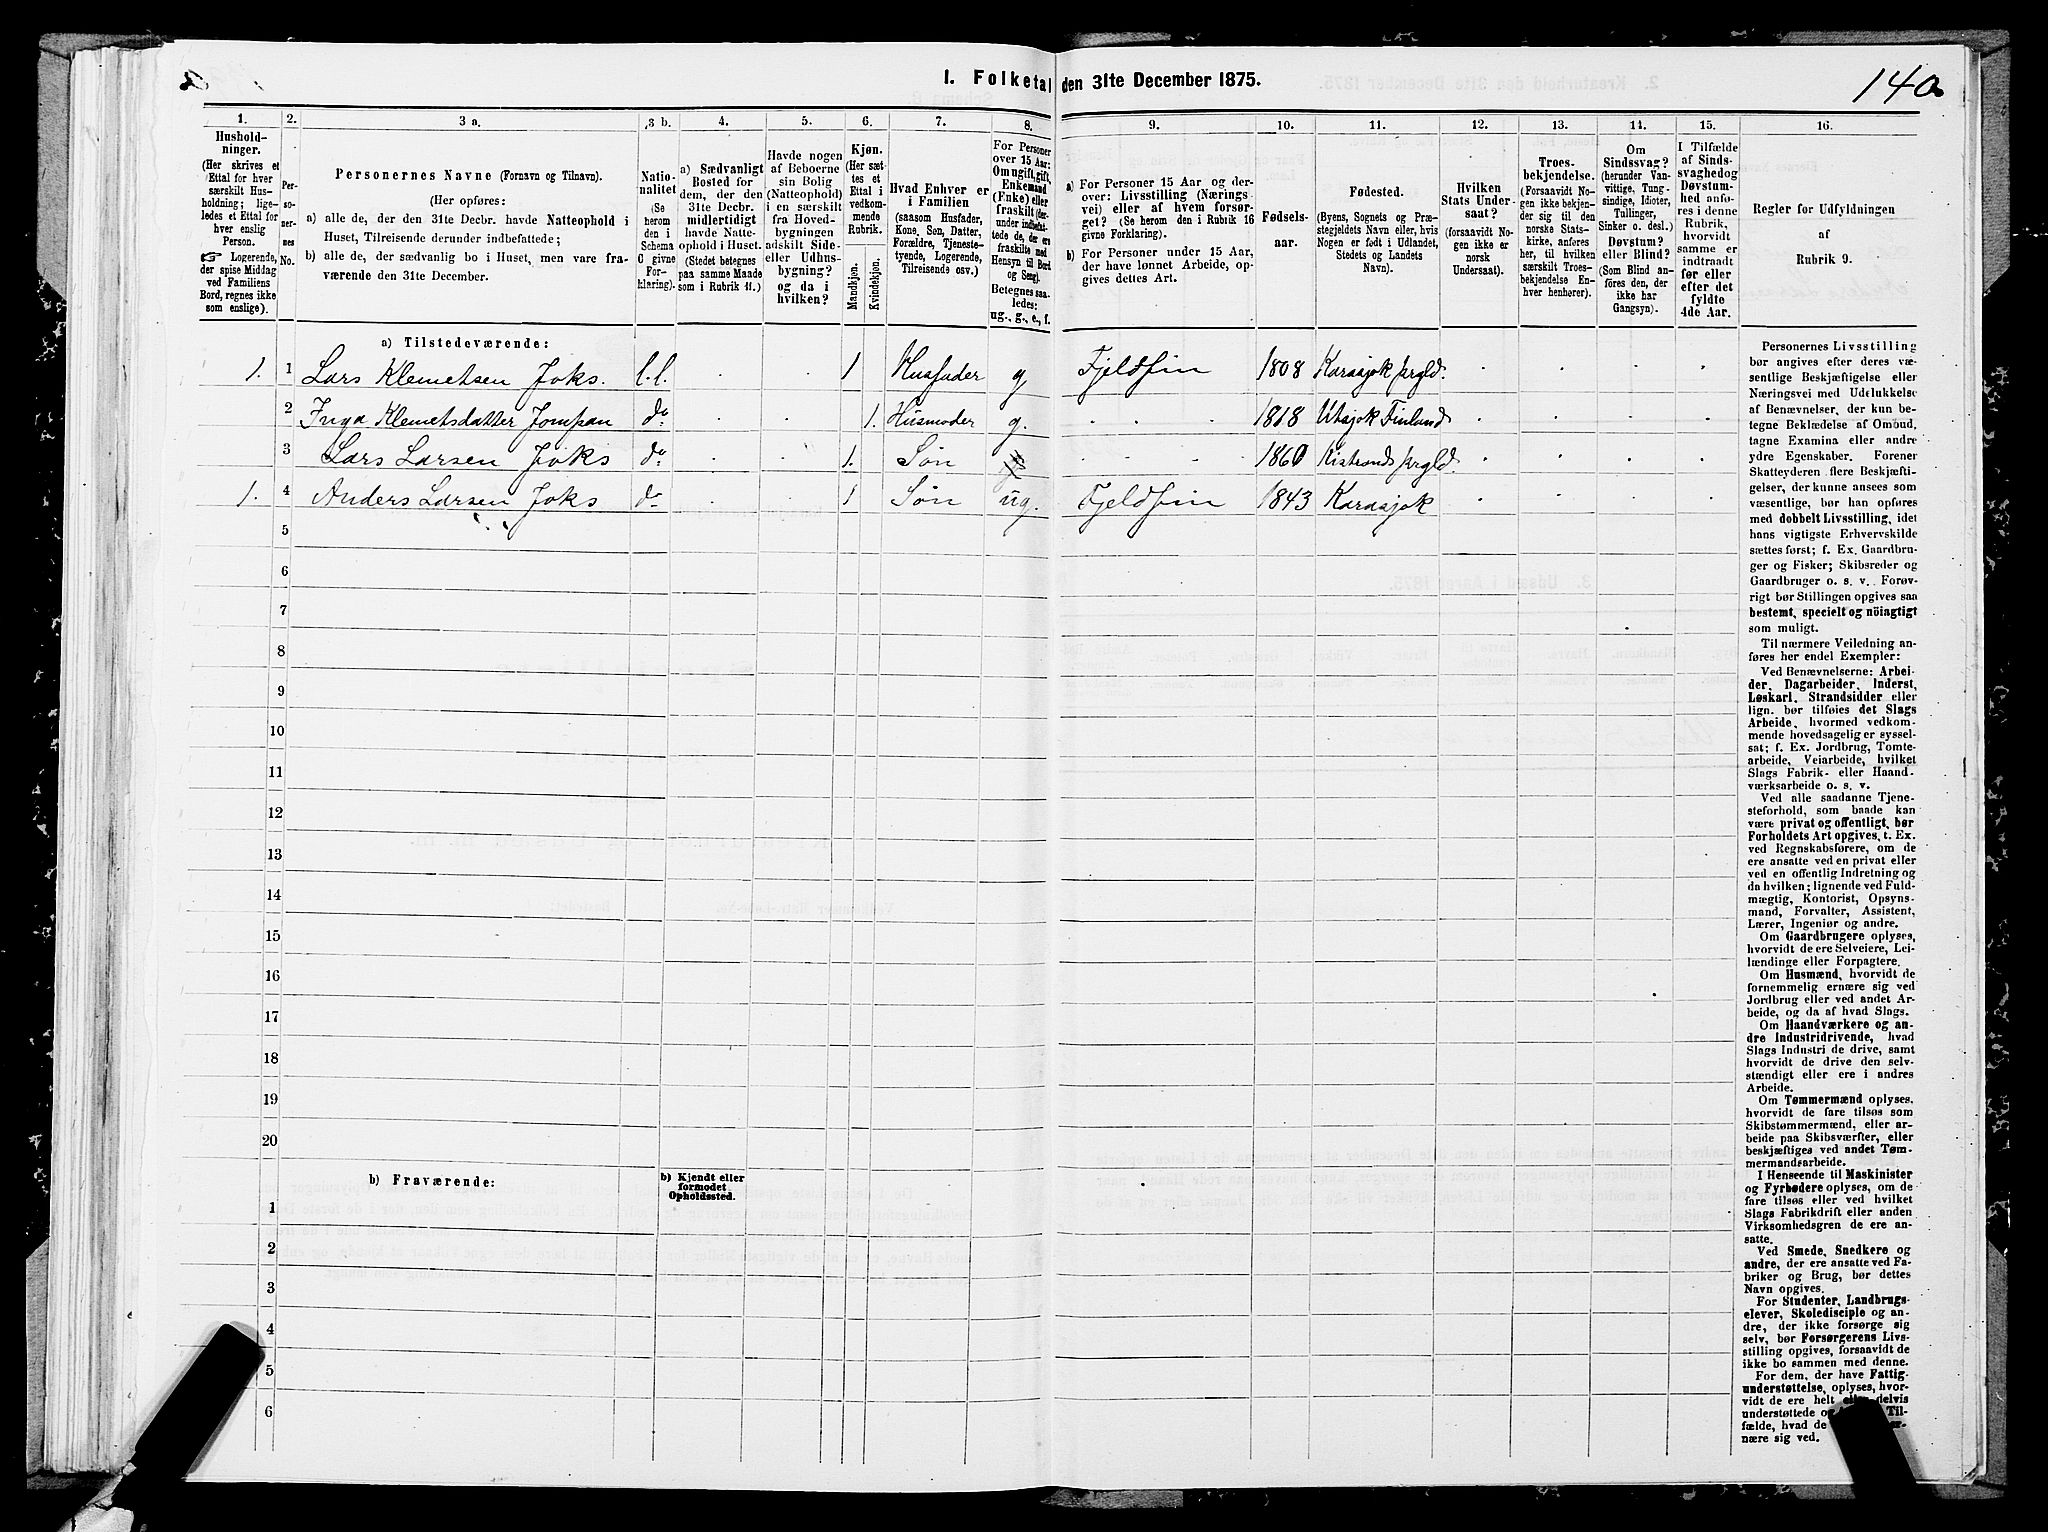 I. Folketal den 31te December 1875.
140
1.
Hushold-
ninger.
(Her skrives et
Ettal for hver
særskilt Hus-
holdning; lige-
ledes et Ettal for
hver enslig
Person.
Logerende,
der spise Middag
ved Familiens
Bord, regnes ikke
som enslige).
2.
Per-
so-
ner-
nes
No.
3 a.
Personernes Navne (Fornavn og Tilnavn).
(Her opføres:
a) alle de, der den 31te Decbr. havde Natteophold i
Huset, Tilreisende derunder indbefattede;
b) alle de, der sædvanlig bo i Huset, men vare fra-
værende den 31te December.
3 b.
Natio-
nalitet
(Se
herom
den i
Schema
C givne
For-
klaring).
4.
a) Sædvanligt
Bosted for
dem, der den
31te Decbr.
midlertidigt
havde Natte-
ophold i Huset.
(Stedet betegnes
paa samme Maade
som i Rubrik 11.)
5.
Havde nogen
af Beboerne
sin Bolig
(Natteophold)
i en særskilt
fra Hoved-
bygningen
adskilt Side-
eller Udhus-
bygning?
og da i
hvilken?
6.
Kjøn.
(Her sæt-
tes et
Ettal i
vedkom-
mende
Rubrik.
Mandkjøn.
Kvindekjøn.
7.
Hvad Enhver er
i Familien
(saasom Husfader,
Kone, Søn, Datter,
Forældre, Tjeneste-
tyende, Logerende,
Tilreisende osv.)
8.
For Personer
over 15 Aar:
Om ugift, gift,
Enkemand
(Enke) eller
fraskilt (der-
under indbefat-
tede de, der ere
fraskilte med
Hensyn til Bord
og Seng).
Betegnes saa-
ledes:
ug., g., e., f.
9.
a) For Personer 15 Aar og der-
over: Livsstilling (Nærings-
vei) eller af hvem forsør-
get? (Se herom den i Rubrik 16
givne Forklaring).
b) For Personer under 15 Aar,
der have lønnet Arbeide, op-
gives dettes Art.
10.
Fødsels-
aar.
11.
Fødested.
(Byens, Sognets og Præ-
stegjeldets Navn eller, hvis
Nogen er født i Udlandet,
Stedets og Landets
Navn).
12.
Hvilken
Stats Under-
saat?
(forsaavidt No-
gen ikke er
norsk
Undersaat).
13.
Troes-
bekjendelse.
(Forsaavidt No-
gen ikke bekjen-
der sig til den
norske Stats-
kirke, anføres
her, til hvilken
særskilt Troes-
bekjendelse En-
hver henhører).
14.
Om
Sindssvag?
(herunder Van-
vittige, Tung-
sindige, Idioter,
Tullinger,
Sinker o. desl.)
Døvstum?
eller Blind?
(Som Blind an-
føres den, der
ikke har
Gangsyn).
15.
I Tilfælde
af Sinds-
svaghed og
Døvstum-
hed anfø-
res i denne
Rubrik,
hvorvidt
samme er
indtraadt
før eller
efter det
fyldte
4de Aar.
16.
Regler for Udfyldningen
af
Rubrik 9.
a) Tilstedeværende:
1. 1 Lars Klemetsen Joks. l.l. 1 Husfader g Fjeldfin 1808 Karasjok prgld.
2 Inga Klemetsdatter Jompan do. 1. Husmoder g. 1818 Utsjok Finland
3 Lars Larsen Joks do. 1. Søn 1860 Kistrands prgld.
1. 4 Anders Larsen Joks do 1 Søn ug. Fjeldfin 1843 Karasjok
5
6
7
8
9
10
11
12
13
14
15
16
17
18
19
20
b) Fraværende:
b) Kjendt eller
formodet
Opholdssted.
1
2
3
4
5
6
Personernes Livsstilling
bør angives efter deres væ-
sentlige Beskjæftigelse eller
Næringsvei med Udelukkelse
af Benævnelser, der kun be-
tegne Beklædelse af Ombud,
tagne Examina eller andre
ydre Egenskaber. Forener
Skatteyderen flere Beskjæfti-
gelser, der kunne ansees som
væsentlige, bør han opføres
med dobbelt Livsstilling, idet
hans vigtigste Erhvervskilde
sættes først; f. Ex. Gaardbru-
ger og Fisker; Skibsreder og
Gaardbruger o. s. v. Forøv-
rigt bør Stillingen opgives saa
bestemt, specielt og nöiagtigt
som muligt.
Til nærmere Veiledning an-
føres her endel Exempler:
Ved Benævnelserne: Arbei-
der, Dagarbeider, Inderst,
Løskarl, Strandsidder eller
lign. bør tilføies det Slags
Arbeide, hvormed vedkom-
mende hovedsagelig er syssel-
sat; f. Ex. Jordbrug, Tomte-
arbeide, Veiarbeide, hvilket
Slags Fabrik- eller Haand-
værksarbeide o. s. v.
Ved alle saadanne Tjene-
steforhold, som baade kan
være privat og offentligt, bør
Forholdets Art opgives, t. Ex.
ved Regnskabsførere, om de
ere ansatte ved en privat eller
ved en offentlig Indretning og
da hvilken; lignende ved Fuld-
mægtig, Kontorist, Opsyns-
mand, Forvalter, Assistent,
Lærer, Ingeniør og andre.
Om Gaardbrugere oplyses,
hvorvidt de ere Selveiere, Lei-
lændinge eller Forpagtere.
Om Husmænd, hvorvidt de
fornemmelig ernære sig ved
Jordbrug eller ved andet Ar-
beide, og da af hvad Slags.
Om Haandværkere og an-
dre Industridrivende, hvad
Slags Industri de drive, samt
hvorvidt de drive den selv-
stændigt eller ere i andres
Arbeide.
Om Tømmermænd oplyses,
hvorvidt de fare tilsøs som
Skibstømmermænd, eller ar-
beide paa Skibsværfter, eller
beskjæftiges ved andet Tøm-
mermandsarbeide.
I Henseende til Maskinister
og Fyrbødere oplyses, om de
fare tilsøs eller ved hvilket
Slags Fabrikdrift eller anden
Virksomhedsgren de ere an-
satte.
Ved Smede, Snedkere og
andre, der ere ansatte ved Fa-
briker og Brug, bør dettes
Navn opgives.
For Studenter, Landbrugs-
elever, Skoledisciple og an-
dre, der ikke forsørge sig
selv, bør Forsørgerens Livs-
stilling opgives, forsaavidt de
ikke bo sammen med denne.
For dem, der have Fattig-
understøttelse, oplyses, hvor-
vidt de ere helt eller delvis
understøttede og Til-
fælde, hvad de
nære sig ved.